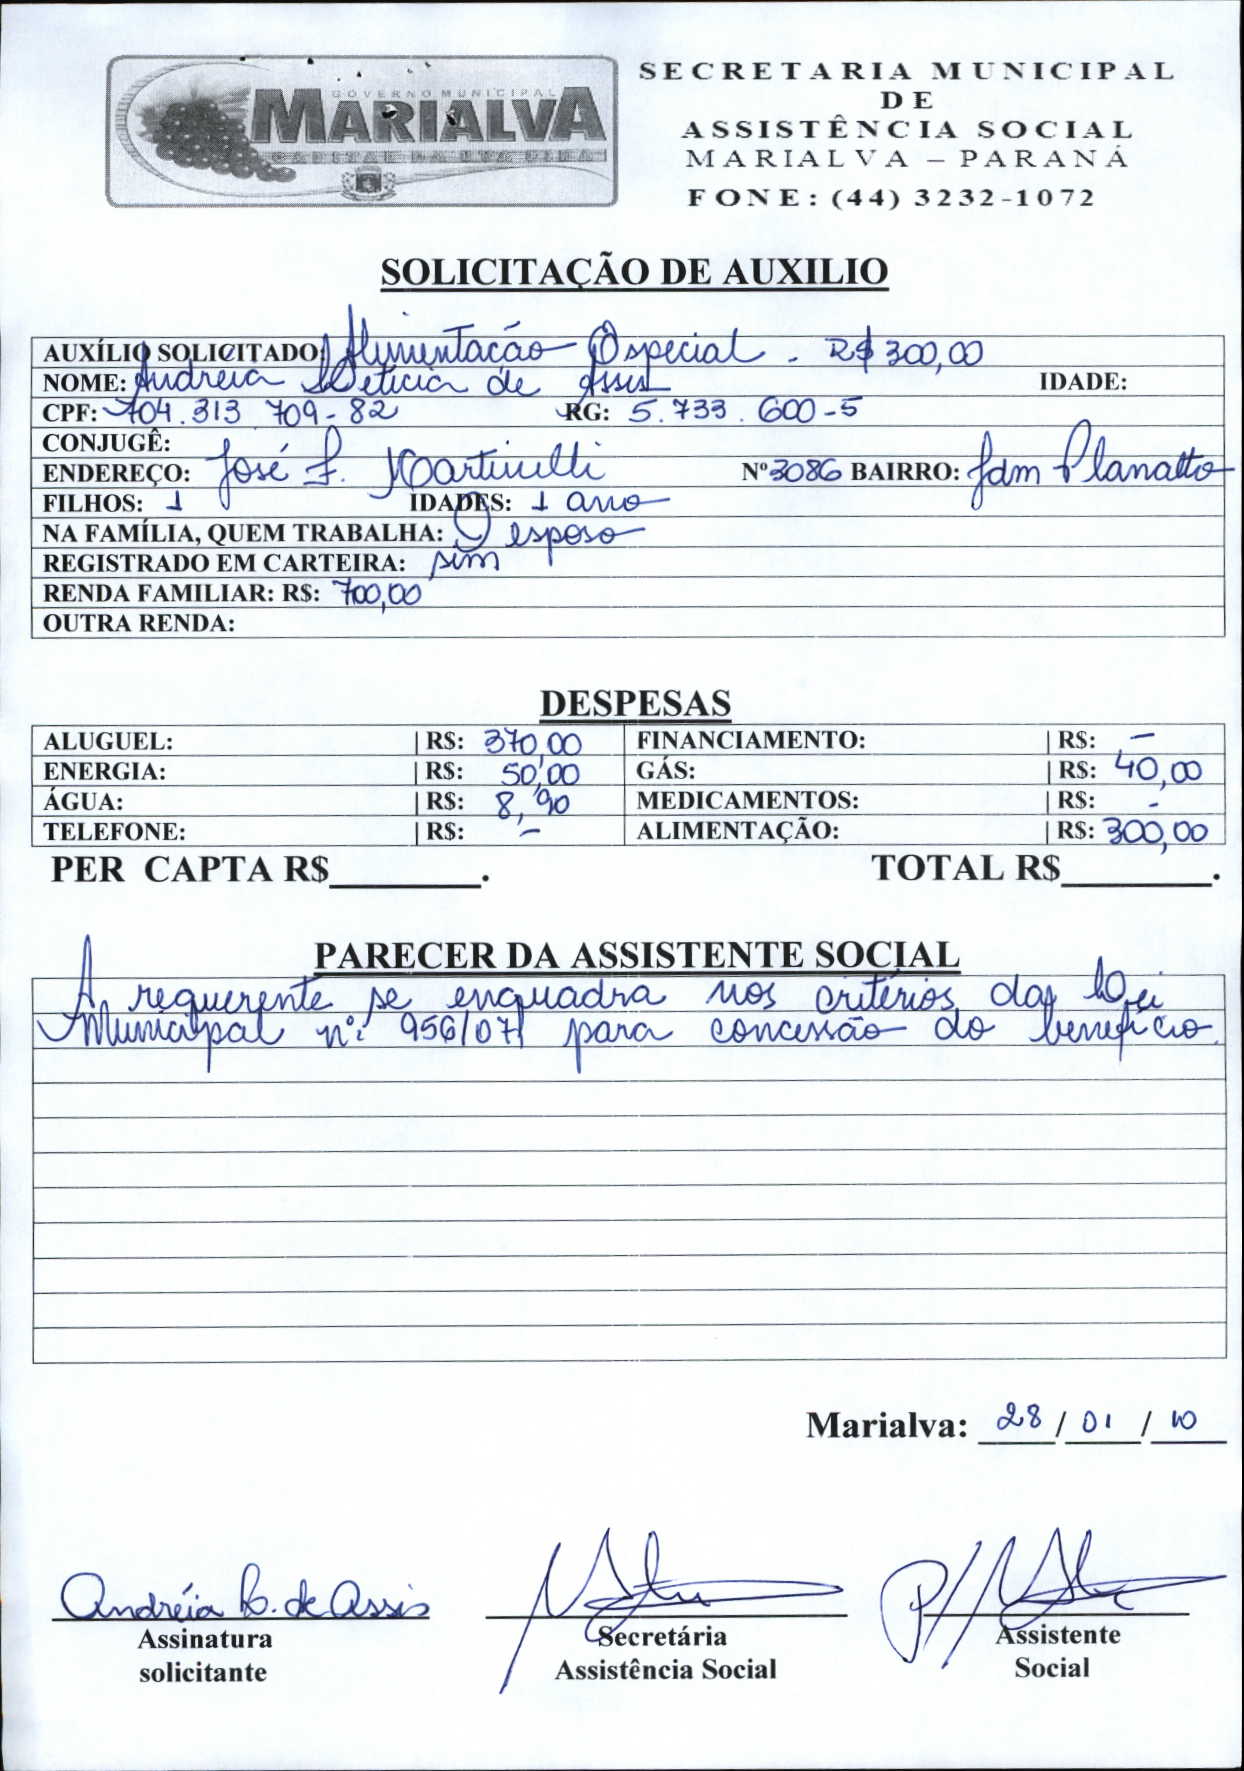 GOVERNO MUNICIPAL
MARIALVA
CAPITAL DA UVA FINA
SECRETARIA MUNICIPAL
DE
ASSISTÊNCIA SOCIAL
MARIALVA – PARANÁ
FONE: (44) 3232-1072
SOLICITAÇÃO DE AUXILIO
AUXÍLIO SOLICITADO: Alimentacão Especial - R$ 300,00
NOME: Andreia Leticia de Assis IDADE:
CPF: 704.313 709-82 RG: 5.733.600-5
CONJUGÊ:
ENDEREÇO: José F. Martinelli Nº 3086 BAIRRO: Jdm Planalto
FILHOS: 1 IDADES: 1 ano
NA FAMÍLIA, QUEM TRABALHA: O esposo
REGISTRADO EM CARTEIRA: sim
RENDA FAMILIAR: R$: 700,00
OUTRA RENDA:
DESPESAS
ALUGUEL: | R$: 370,00 FINANCIAMENTO: | R$: -
ENERGIA: | R$: 50,00 GÁS: | R$: 40,00
ÁGUA: | R$: 8,90 MEDICAMENTOS: | R$: -
TELEFONE: | R$: - ALIMENTAÇÃO: | R$: 300,00
PER CAPTA R$________. TOTAL R$________.
PARECER DA ASSISTENTE SOCIAL
A requerente se enquadra nos critérios da Lei
Municipal nº 956/07 para concessão do benefício.
Marialva: 28 / 01 / 10
Andréia L. de Assis
Assinatura Secretária Assistente
solicitante Assistência Social Social